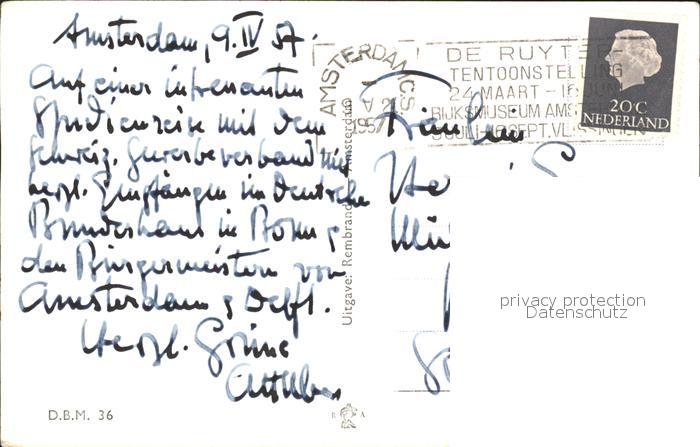 Amsterdam, 9. IV 57.
Auf einer interessanten
Studienreise mit dem
schweiz. Gewerbeverband mit
herzl. Empfängen im Deutschen
Bundeshaus in Bonn &
den Bürgermeistern von
Amsterdam & Delft.
Herzl. Grüsse
D.B.M. 36
Uitgave: Rembrandt Amsterdam
R A
AMSTERDAM C.S.
1957
DE RUYTER-
TENTOONSTELLING
24 MAART - 16 JUNI
RIJKSMUSEUM AMSTERDAM
JULI-16 SEPT. VLISSINGEN
20 C
NEDERLAND
Fräulein
privacy protection
Datenschutz